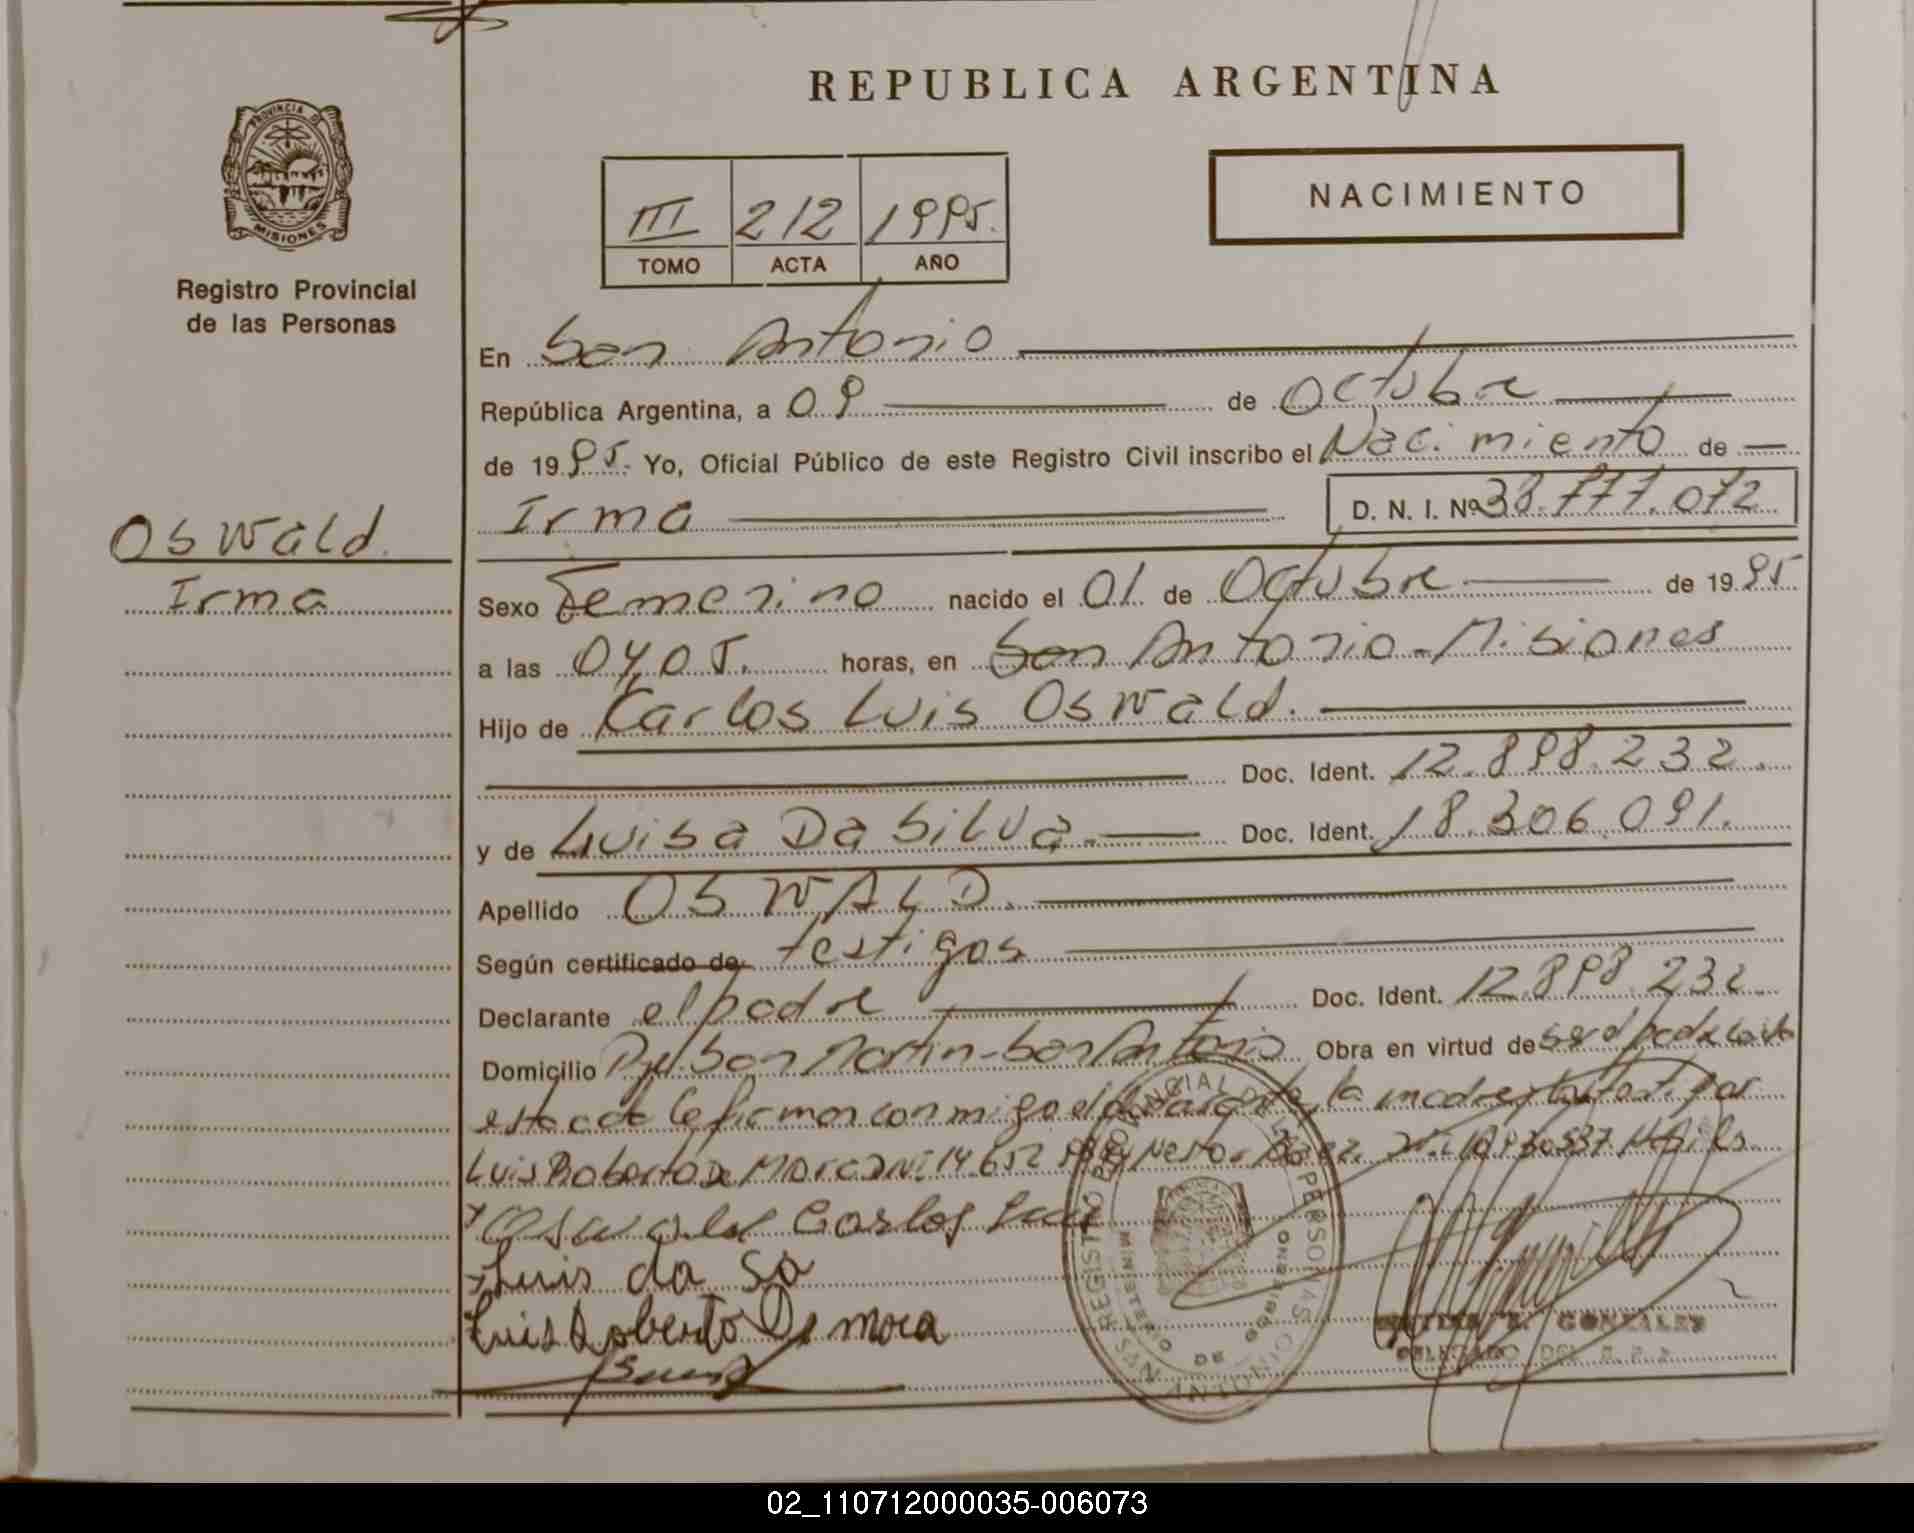 REPUBLICA ARGENTINA
PROVINCIA D
MISIONES
Registro Provincial
de las Personas
III 212 1995.
TOMO ACTA AÑO
NACIMIENTO
En San Antonio
República Argentina, a 09 de Octubre
de 1995. Yo, Oficial Público de este Registro Civil inscribo el Nacimiento de
Irma D. N. I. Nº 38.777.072
Oswald.
Irma
Sexo Femenino nacido el 01 de Octubre de 1995
a las 04,05. horas, en San Antonio - Misiones
Hijo de Carlos Luis Oswald.
Doc. Ident. 12.898.232.
y de Luisa Da Silva. Doc. Ident. 18.306.091.
Apellido OSWALD.
Según certificado de testigos
Declarante el padre Doc. Ident. 12.898.232
Domicilio San Martin - San Antonio Obra en virtud de ser el padre
la madre
Luis Roberto De Mora DNI 14.652
Oswald Carlos Luis
Luis da Sa
Luis Roberto De Mora
REGISTRO PROVINCIAL DE LAS PERSONAS
MINISTERIO DE GOBIERNO
SAN ANTONIO
GONZALEZ
DELEGADO DEL R. P. P.
02_110712000035-006073